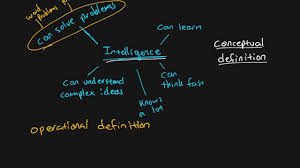 word
problems
can solve problems
Can learn
Intelligence
Conceptual
definition
Can understand
complex ideas
Can
think fast
Knows
a lot
operational definition